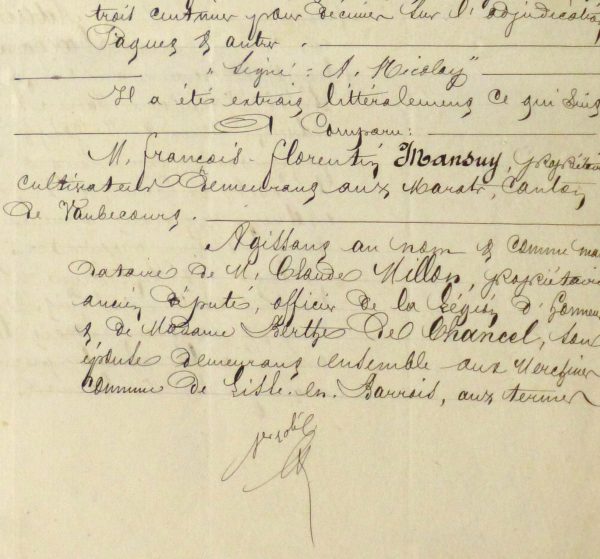 trois centimes pour Décimes sur l'adjudication
Paquez & autres.
"Signé : A. Nicolay"
Il a été extrais littéralement ce qui Suis
A Comparu :
M. François-Florentin Mansuy, propriétaire
cultivateur Demeurans aux Marats, Canton
De Vaubecours.
Agissans au nom & comme man
dataire De M. Claude Millon, propriétaire
ancien Député, officier De la Légion D'honneur
& De Madame Berthe De Chancel, son
épouse Demeurans ensemble aux Merchines
Commune De Lisle-en-Barrois, aux termes